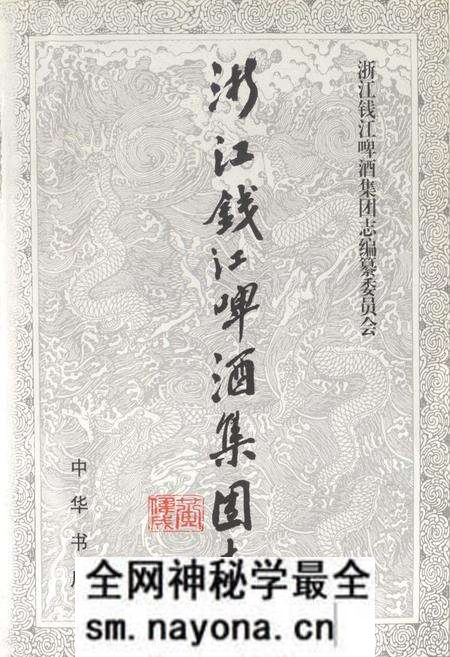 浙江钱江啤酒集团志编纂委员会
浙江钱江啤酒集团
中华书
全网神秘学最全
sm.nayona.cn